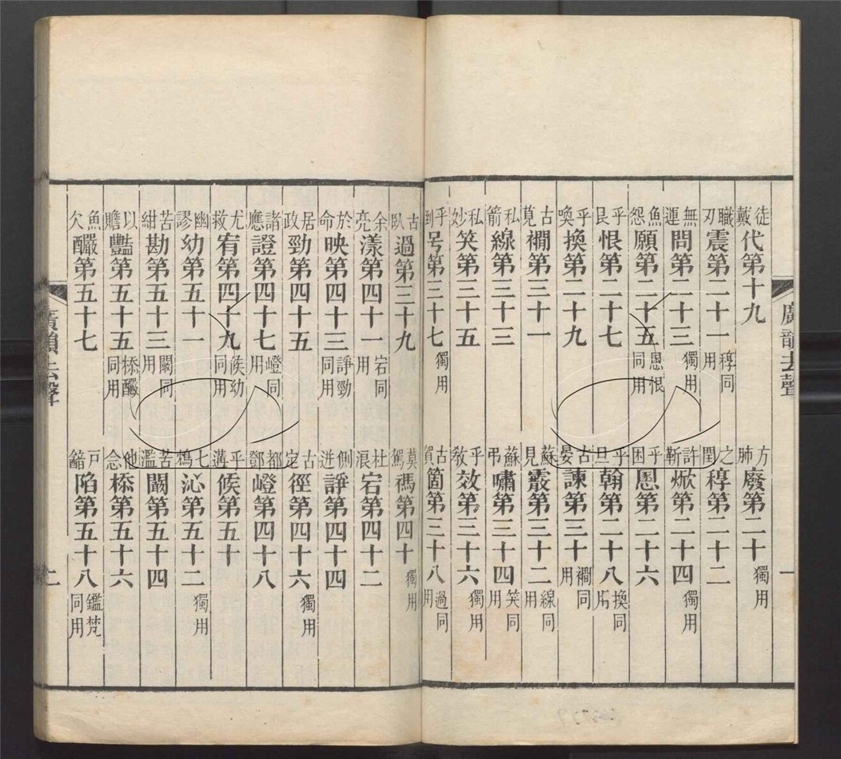 廣韻去聲 一
徒戴代第十九 方肺廢第二十獨用
職刃震第二十一稕同用 之閏稕第二十二
無運問第二十三獨用 許靳焮第二十四獨用
魚怨願第二十五慁恨同用 乎困慁第二十六
乎艮恨第二十七 乎旦翰第二十八換同用
乎喚換第二十九 古晏諫第三十襇同用
古莧襇第三十一 蘇見霰第三十二線同用
私箭線第三十三 蘇弔嘯第三十四笑同用
私妙笑第三十五 乎敎效第三十六獨用
乎到号第三十七獨用 古賀箇第三十八過同用
古臥過第三十九 莫駕禡第四十獨用
余亮漾第四十一宕同用 杜浪宕第四十二
於命映第四十三諍勁同用 側迸諍第四十四
居政勁第四十五 古定徑第四十六獨用
諸應證第四十七嶝同用 都鄧嶝第四十八
尤救宥第四十九候幼同用 乎遘候第五十
幽謬幼第五十一 七鴆沁第五十二獨用
苦紺勘第五十三闞同用 苦濫闞第五十四
以贍豔第五十五㮇釅同用 他念㮇第五十六
魚欠釅第五十七 戶韽陷第五十八鑑梵同用
廣韻去聲